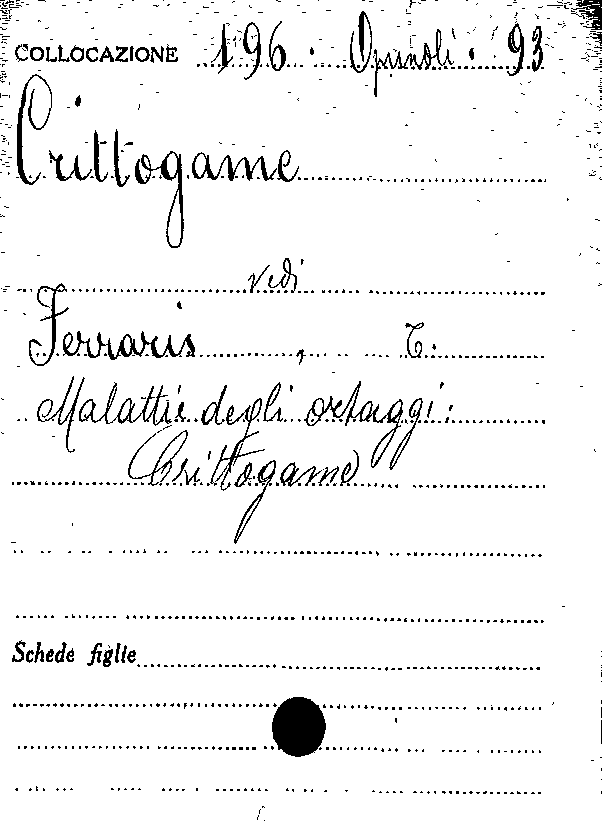 COLLOCAZIONE 196 · Opuscoli · 93
Crittogame
vedi
Ferraris, T.
Malattie degli ortaggi:
Crittogame
Schede figlie